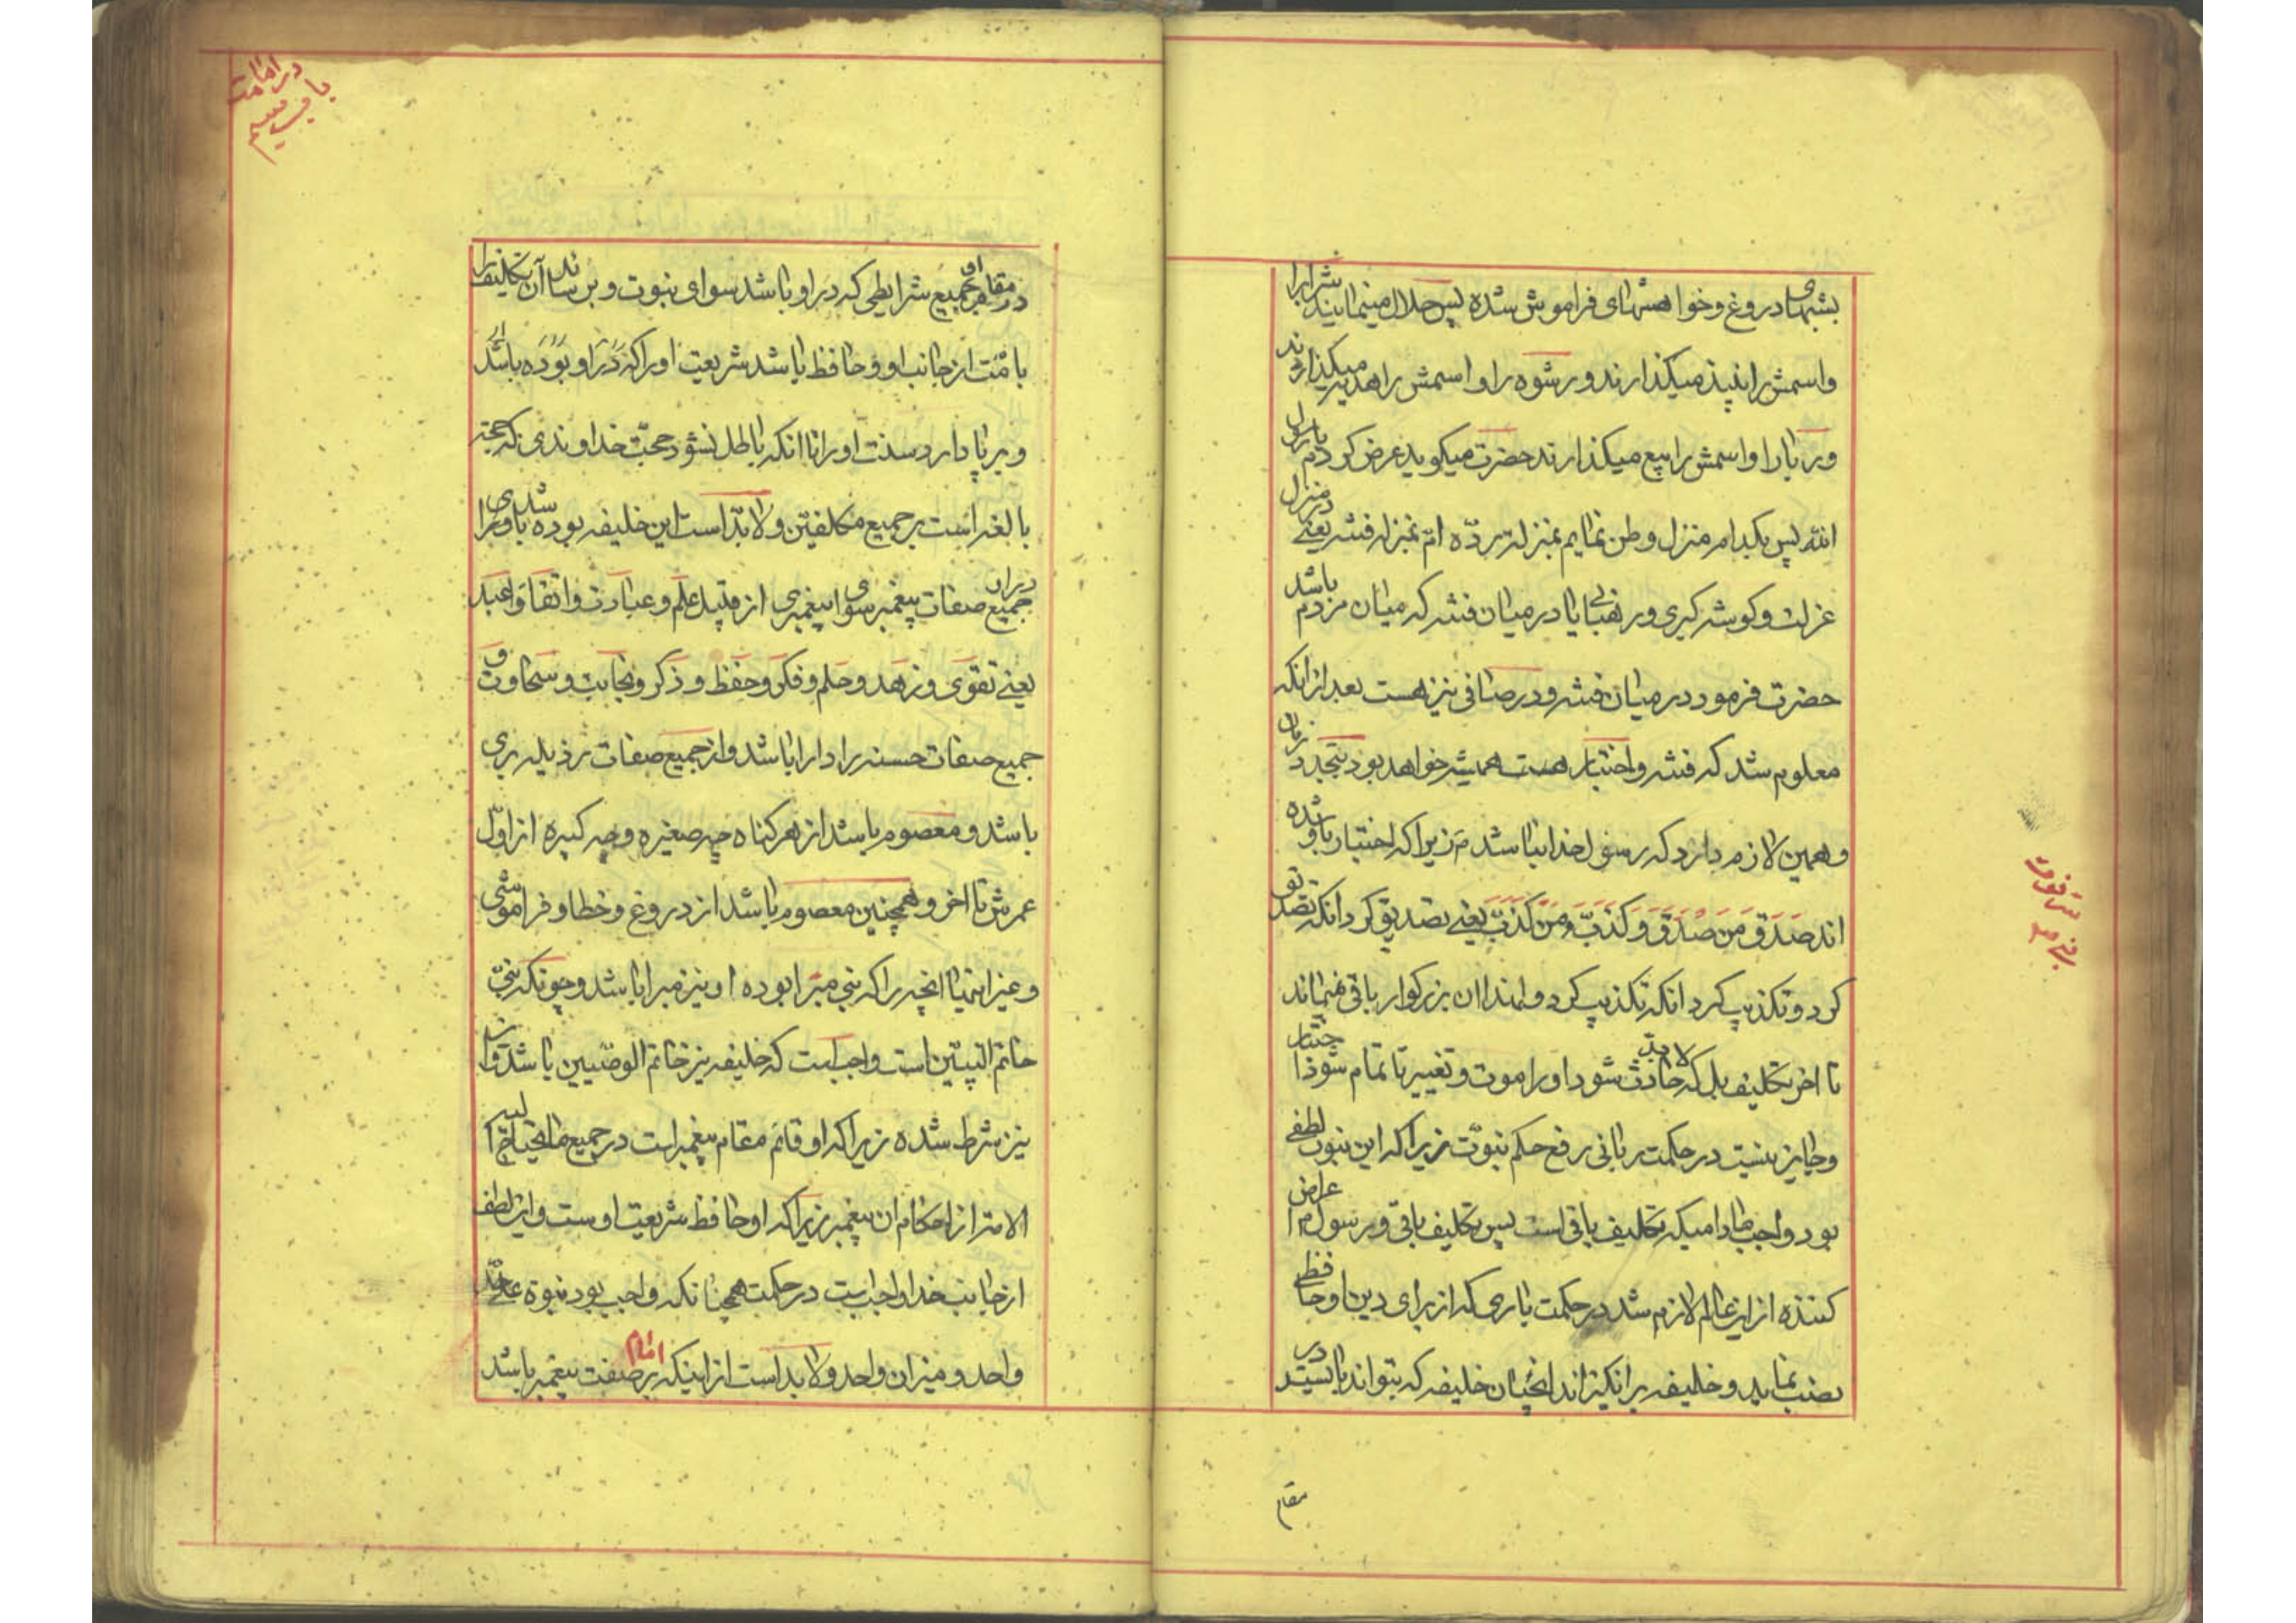 بشبهای دروغ و خواهشهای فراموش شده پس حلال مینمایند شراب را
و اسمش را نبیذ میگذارند و رشوه را و اسمش را هدیه میگذارند
و ربا را و اسمش را بیع میگذارند حضرت میکوید عرض کردم یا رسول
الله پس بکدام منزل وطن نمایم بمنزله ردّه ام بمنزله فتنه یعنی در منزل
عزلت و کوشه کیری و رهبانی یا در میان فتنه که میان مردم باشد
حضرت فرمود در میان فتنه و در صافی نیز هست بعد از انکه
معلوم شد که فتنه و اختبار هست همیشه خواهد بود بتجدد زمان
و همین لازم دارد که رسول خدا نباشد م زیرا که اختبار باو شده
اند صَدَقَ مَن صَدَقَ وَ کذبَ وَ مَن کَذَبَ یعنی تصدیق کرد انکه تصدیق
کرد و تکذیب کرد انکه تکذیب کرد و لهذا ان بزرکوار باقی نمیماند
تا اخر تکلیف بل که لابدّ حادث شود او را موت و تغییر تا تمام شود اختبار
و جایز نیست در حکمت ربانی رفع حکم نبوّت زیرا که این نبوت لطفی
بود واجب مادامیکه تکلیف باقی است پس تکلیف باقی و رسول م اعراض
کننده از این عالم لازم شد در حکمت باری که از برای دین او حافظی
نصب نماید و خلیفه برانکیزاند انچنان خلیفه که بتواند بایستد در
مقام
پس فوت
در امامت
در مقام او بجمیع شرایطی که در او باشد سوای نبوت و برساند آن تکلیف را
بامّت از جانب او و حافظ باشد شریعت او را که در او بوده باشد
و برپا دارد سنت او را تا انکه باطل نشود حجّت خداوندی که حجة
بالغه است بر جمیع مکلفین و لابدّ است این خلیفه بوده باشد دارای
جمیع صفات پیغمبر سوای پیغمبری از قبیل علم و عبادت و اتقا و
یعنی تقوی و زهد و حلم و فکر و حفظ و ذکر و نجابت و سخاوت و
جمیع صفات حسنه را دارا باشد و از جمیع صفات رذیله بری
باشد و معصوم باشد از هر کناه چه صغیره و چه کبیره از اوّل
عمرش تا اخر و همچنین معصوم باشد از دروغ و خطا و فراموشی
و غیر اینها انچه را که نبی مبرا بوده او نیز مبرا باشد و چونکه نبیّ
خاتم النبیّین است واجب است که خلیفه نیز خاتم الوصّیین باشد و
نیز شرط شده زیرا که او قائم مقام پیغمبر است در جمیع ما یحتاج الیه
الامة از احکام ان پیغمبر زیرا که او حافظ شریعت اوست و این لطف
از جانب خدا واجب است در حکمت همچنانکه واجب بود نبوة علی حدّ
واحد و میزان واحد و لابد است از اینکه امام بر صفت پیغمبر باشد